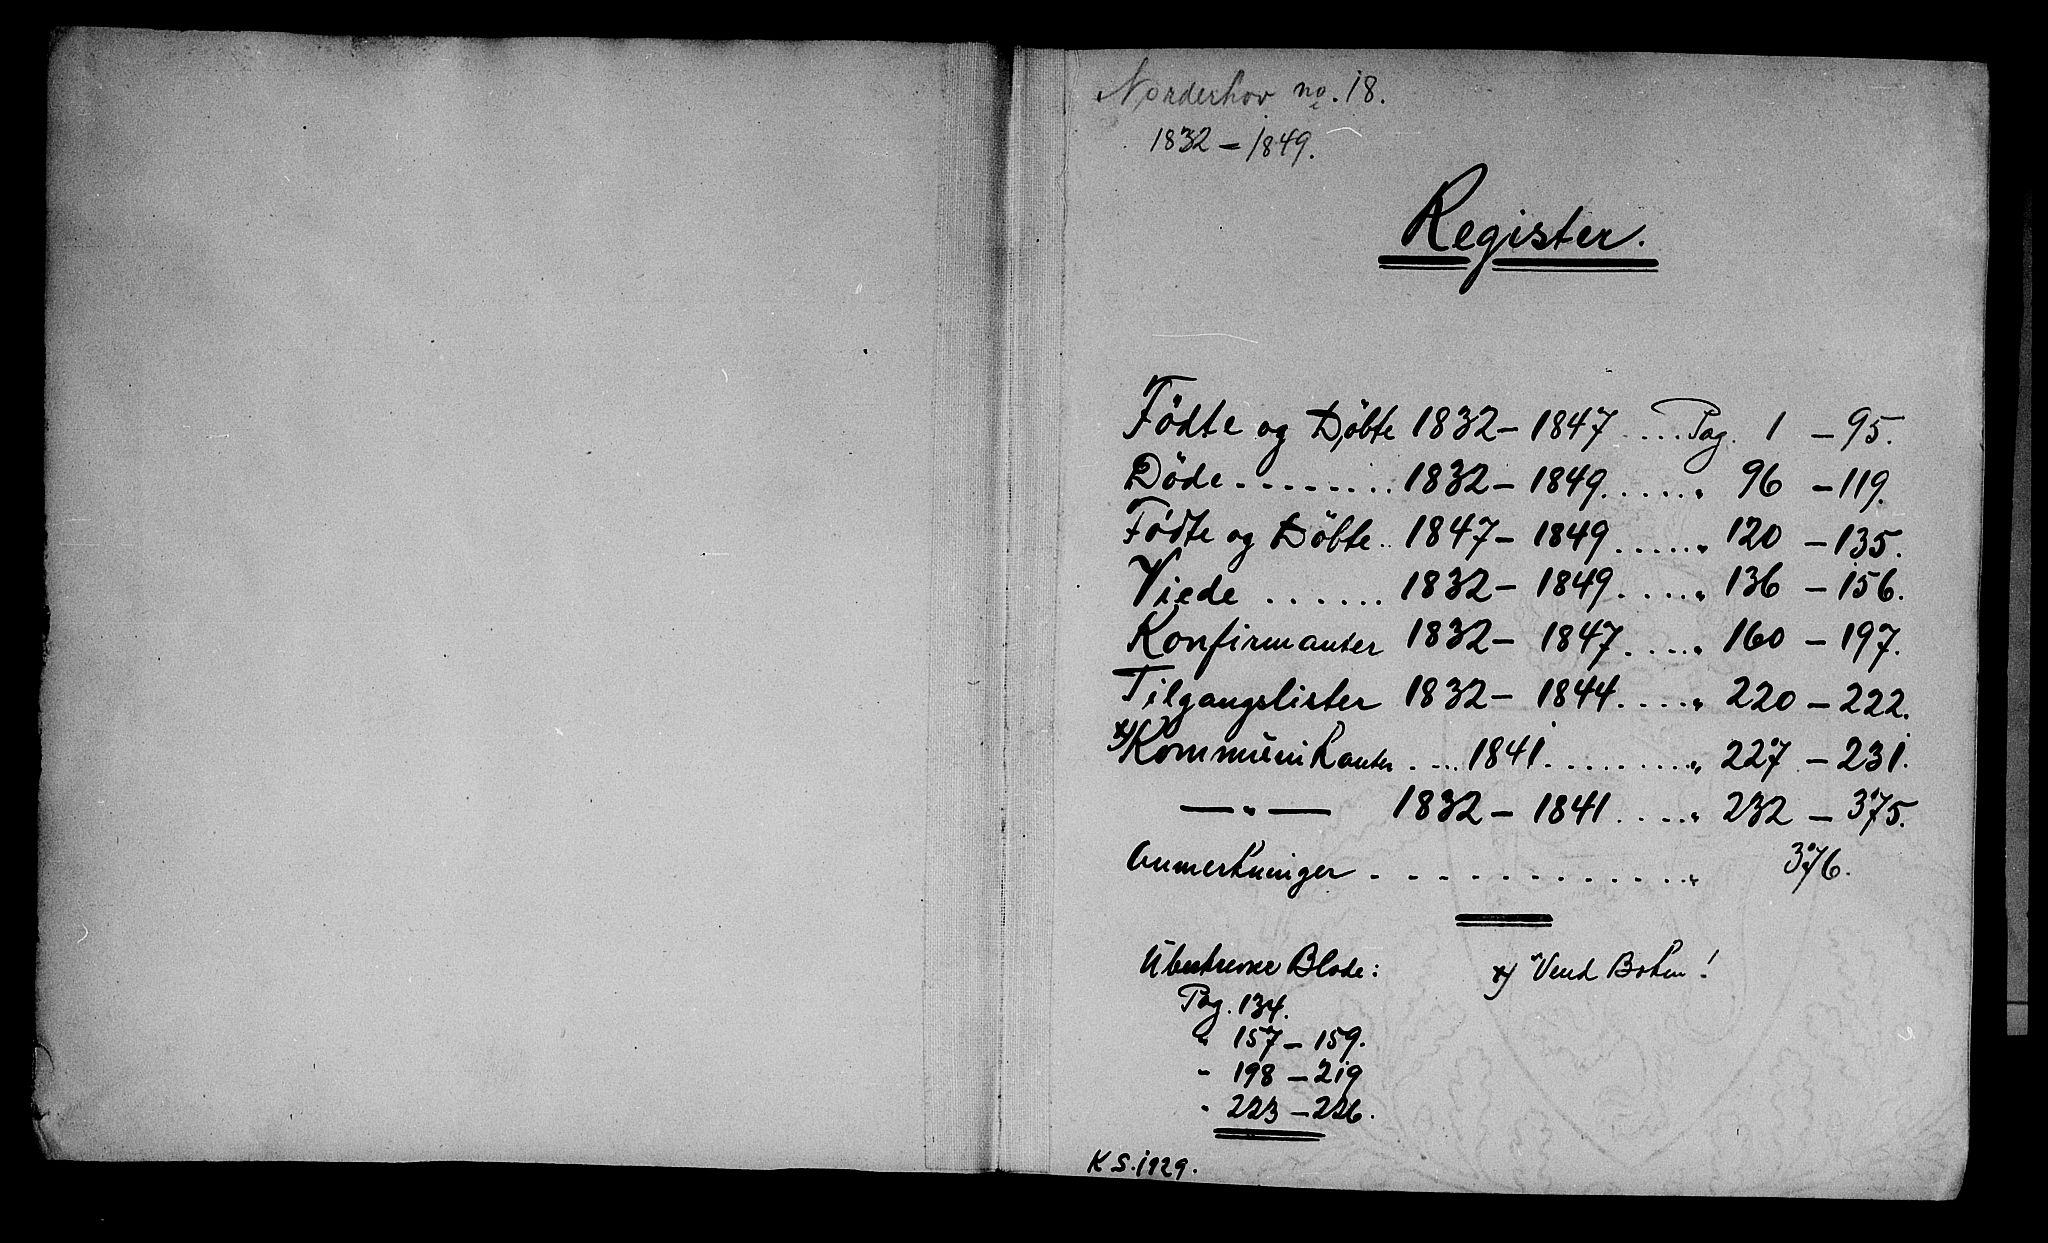 Norderhov no. 18.
1832 – 1849.
Register.
Födte og Döbte 1832 – 1847 .... Pag. 1 – 95.
Döde ........ 1832 – 1849 ...... " 96 – 119.
Födte og Döbte .. 1847 – 1849 ...... " 120 – 135.
Viede ...... 1832 – 1849 ..... " 136 – 156.
Konfirmanter 1832 – 1847 ..... " 160 – 197.
Tilgangslister 1832 – 1844 ..... " 220 – 222.
x) Kommŭnikanter .... 1841 ......... " 227 – 231.
— " — 1832 – 1841 ..... " 232 – 375.
Anmerkninger ............. " 376.
Ubeskrevne Blade:
x) Vend Boken!
Pag. 134.
" 157 – 159.
" 198 – 219
" 223 – 226.
K S. 1929.